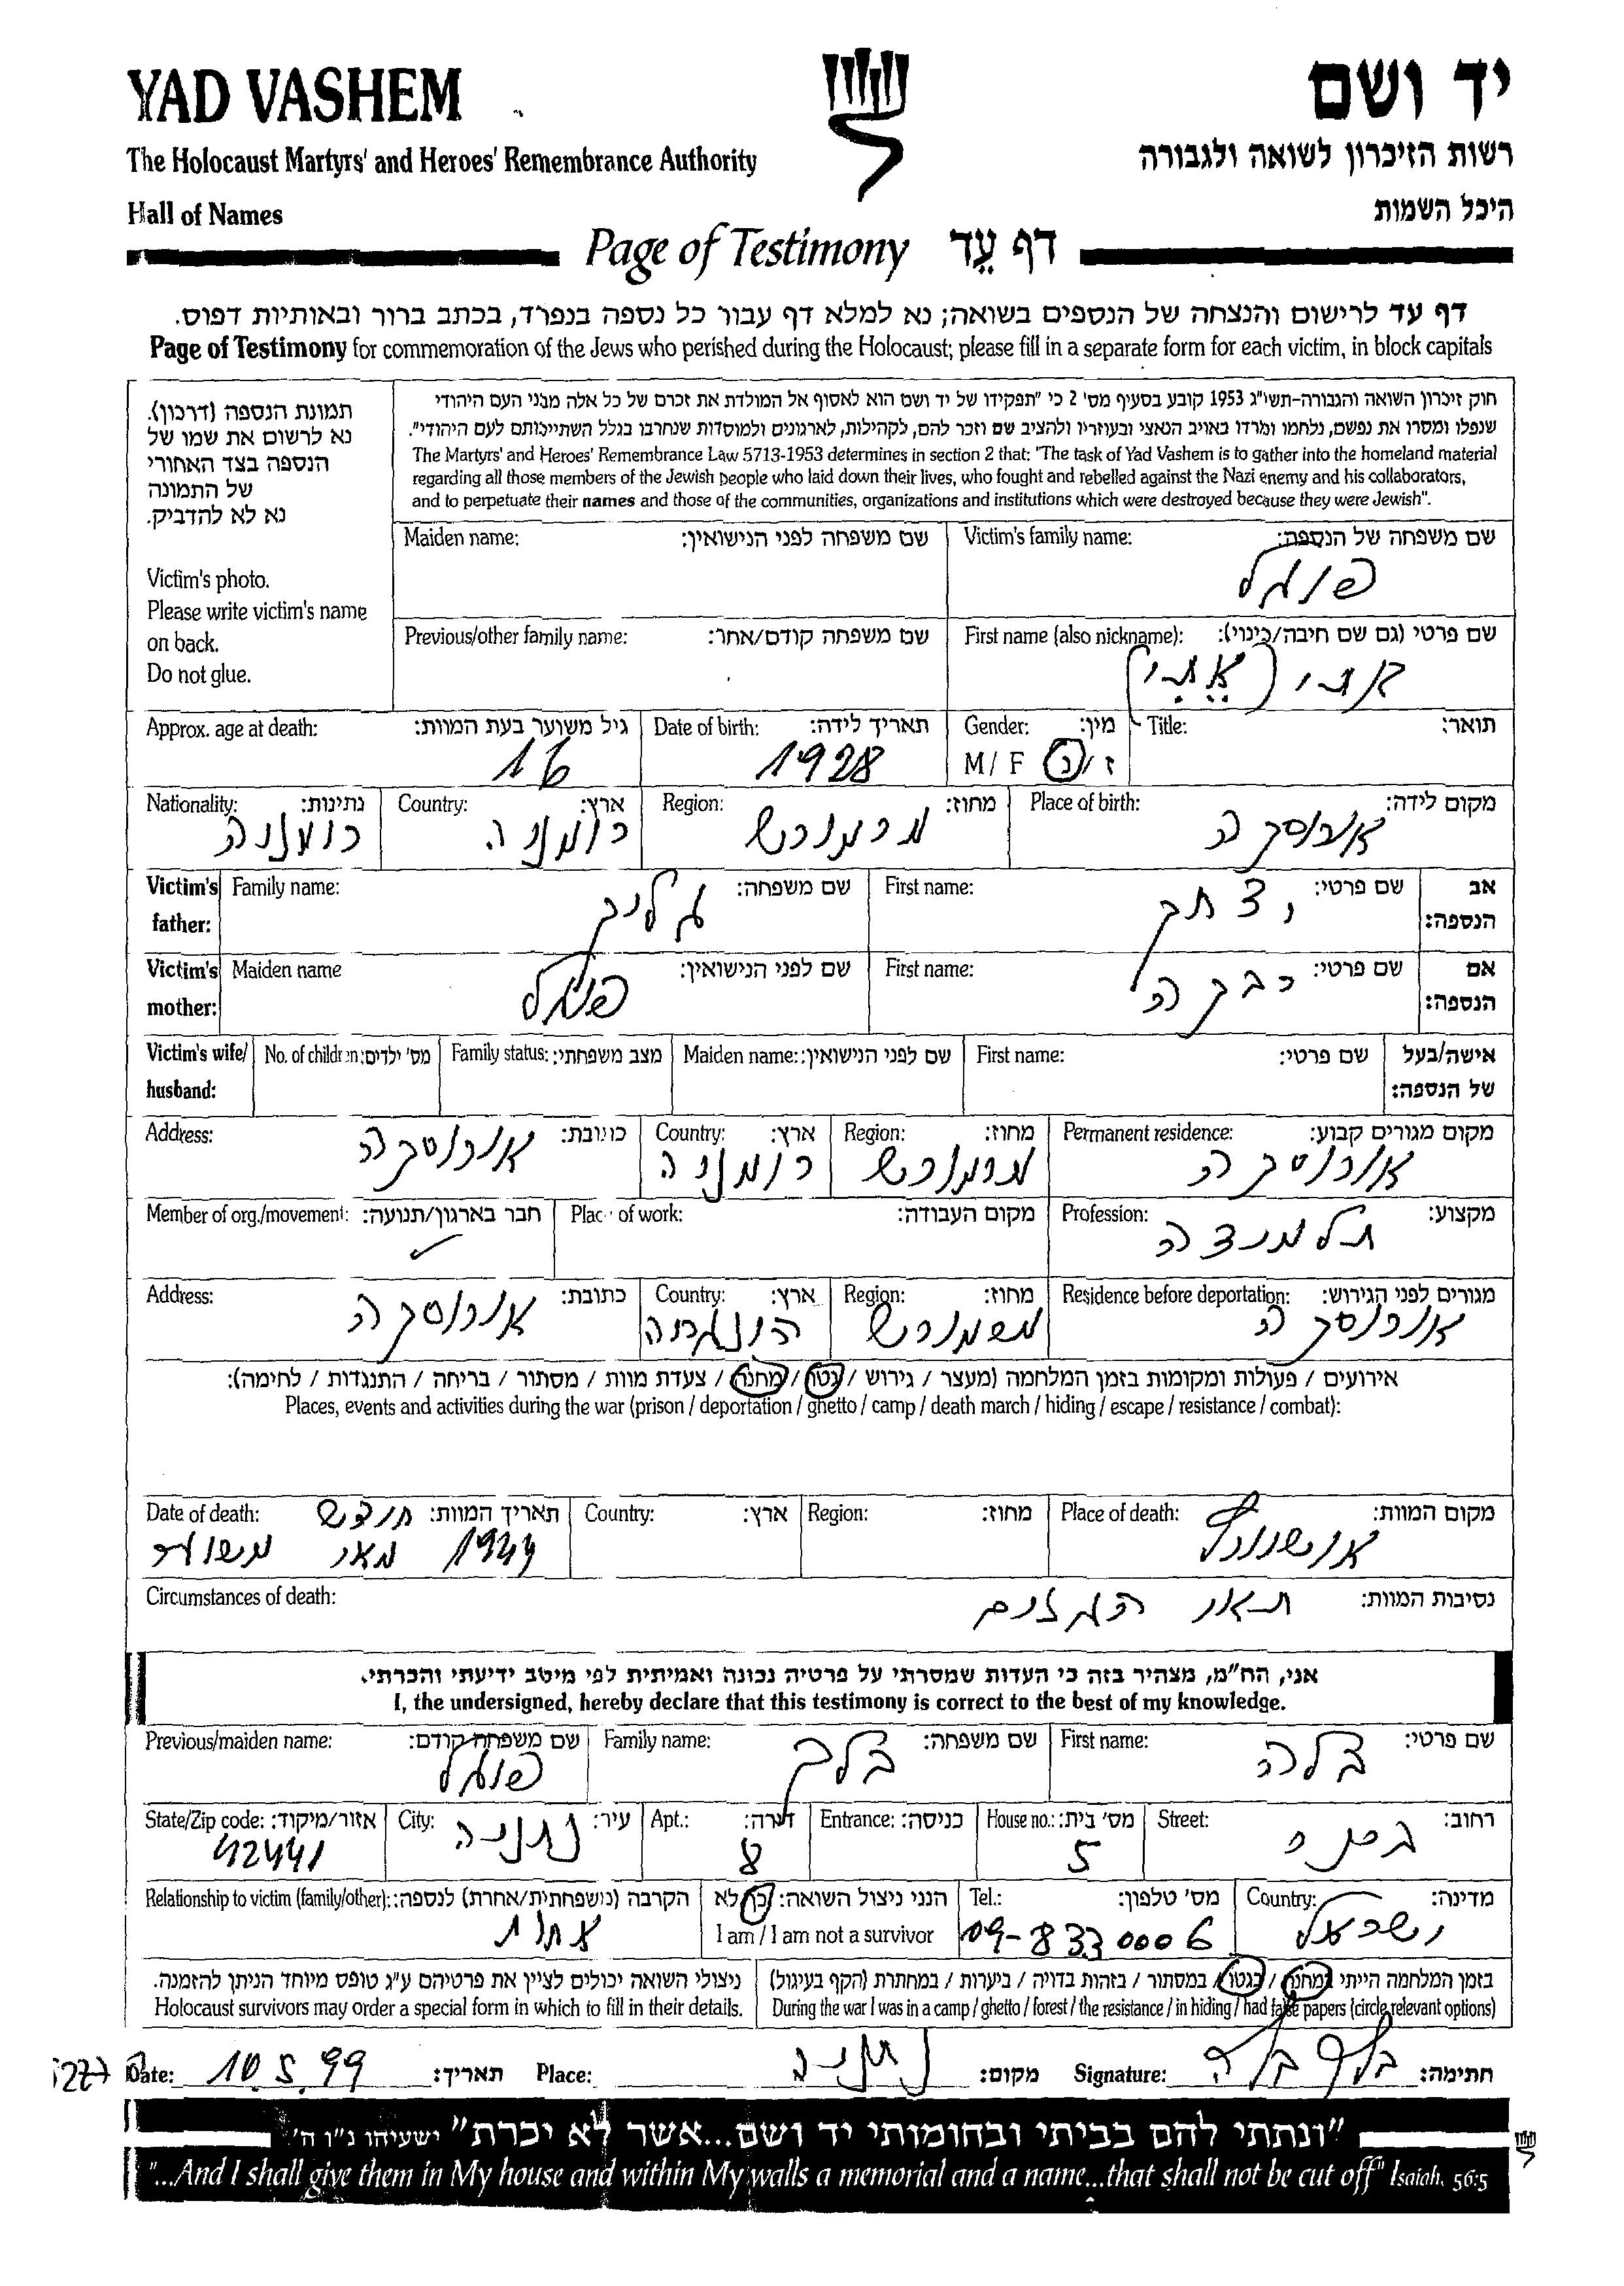 YAD VASHEM
יד ושם
The Holocaust Martyrs' and Heroes' Remembrance Authority
רשות הזיכרון לשואה ולגבורה
Hall of Names
היכל השמות
Page of Testimony דף עֵד
דף עד לרישום והנצחה של הנספים בשואה; נא למלא דף עבור כל נספה בנפרד, בכתב ברור ובאותיות דפוס.
Page of Testimony for commemoration of the Jews who perished during the Holocaust; please fill in a separate form for each victim, in block capitals
תמונת הנספה (דרכון).
נא לרשום את שמו של
הנספה בצד האחורי
של התמונה
נא לא להדביק.
Victim's photo.
Please write victim's name
on back.
Do not glue.
חוק זיכרון השואה והגבורה-תשי"ג 1953 קובע בסעיף מס' 2 כי "תפקידו של יד ושם הוא לאסוף אל המולדת את זכרם של כל אלה מבני העם היהודי
שנפלו ומסרו את נפשם, נלחמו ומרדו באויב הנאצי ובעוזריו ולהציב שם וזכר להם, לקהילות, לארגונים ולמוסדות שנחרבו בגלל השתייכותם לעם היהודי".
The Martyrs' and Heroes' Remembrance Law 5713-1953 determines in section 2 that: "The task of Yad Vashem is to gather into the homeland material
regarding all those members of the Jewish people who laid down their lives, who fought and rebelled against the Nazi enemy and his collaborators,
and to perpetuate their names and those of the communities, organizations and institutions which were destroyed because they were Jewish".
Maiden name: שם משפחה לפני הנישואין:
Victim's family name: שם משפחה של הנספה:
פוגל
Previous/other family name: שם משפחה קודם/אחר:
First name (also nickname): שם פרטי (גם שם חיבה/כינוי):
אתי (אֶתִי)
Approx. age at death: גיל משוער בעת המוות:
16
Date of birth: תאריך לידה:
1928
Gender: מין:
M / F ז / נ
Title: תואר:
Nationality: נתינות:
רומניה
Country: ארץ:
רומניה
Region: מחוז:
מרמורש
Place of birth: מקום לידה:
Victim's father: Family name: שם משפחה:
First name: שם פרטי: אב הנספה:
יצחק
Victim's mother: Maiden name שם לפני הנישואין:
פוגל
First name: שם פרטי: אם הנספה:
רבקה
Victim's wife/ husband: No. of children: מס' ילדים: Family status: מצב משפחתי: Maiden name: שם לפני הנישואין: First name: שם פרטי: אישה/בעל של הנספה:
Address: כתובת:
אורוסקה
Country: ארץ:
רומניה
Region: מחוז:
מרמורש
Permanent residence: מקום מגורים קבוע:
אורוסקה
Member of org./movement: חבר בארגון/תנועה:
Place of work: מקום העבודה:
Profession: מקצוע:
תלמידה
Address: כתובת:
אורוסקה
Country: ארץ:
הונגריה
Region: מחוז:
מרמורש
Residence before deportation: מגורים לפני הגירוש:
אורוסקה
אירועים / פעולות ומקומות בזמן המלחמה (מעצר / גירוש / גטו / מחנה / צעדת מוות / מסתור / בריחה / התנגדות / לחימה):
Places, events and activities during the war (prison / deportation / ghetto / camp / death march / hiding / escape / resistance / combat):
Date of death: תאריך המוות: חודש
1944 מאי משוער
Country: ארץ:
Region: מחוז:
Place of death: מקום המוות:
אושוויץ
Circumstances of death: נסיבות המוות:
תאי הגזים
אני, הח"מ, מצהיר בזה כי העדות שמסרתי על פרטיה נכונה ואמיתית לפי מיטב ידיעתי והכרתי.
I, the undersigned, hereby declare that this testimony is correct to the best of my knowledge.
Previous/maiden name: שם משפחה קודם:
פוגל
Family name: שם משפחה:
בלך
First name: שם פרטי:
בלה
State/Zip code: אזור/מיקוד:
42441
City: עיר:
נתניה
Apt.: דירה:
8
Entrance: כניסה:
House no.: מס' בית:
5
Street: רחוב:
Relationship to victim (family/other): הקרבה (משפחתית/אחרת) לנספה:
אחות
הנני ניצול השואה: כן / לא
I am / I am not a survivor
Tel.: מס' טלפון:
09-8330006
Country: מדינה:
ישראל
ניצולי השואה יכולים לציין את פרטיהם ע"ג טופס מיוחד הניתן להזמנה.
Holocaust survivors may order a special form in which to fill in their details.
בזמן המלחמה הייתי במחנה / בגטו / במסתור / בזהות בדויה / ביערות / במחתרת (הקף בעיגול)
During the war I was in a camp / ghetto / forest / the resistance / in hiding / had false papers (circle relevant options)
Date: 10.5.99 תאריך: Place: נתניה מקום: Signature: בלך בלה חתימה:
"ונתתי להם בביתי ובחומותי יד ושם...אשר לא יכרת" ישעיהו נ"ו ה'
"...And I shall give them in My house and within My walls a memorial and a name...that shall not be cut off" Isaiah, 56:5